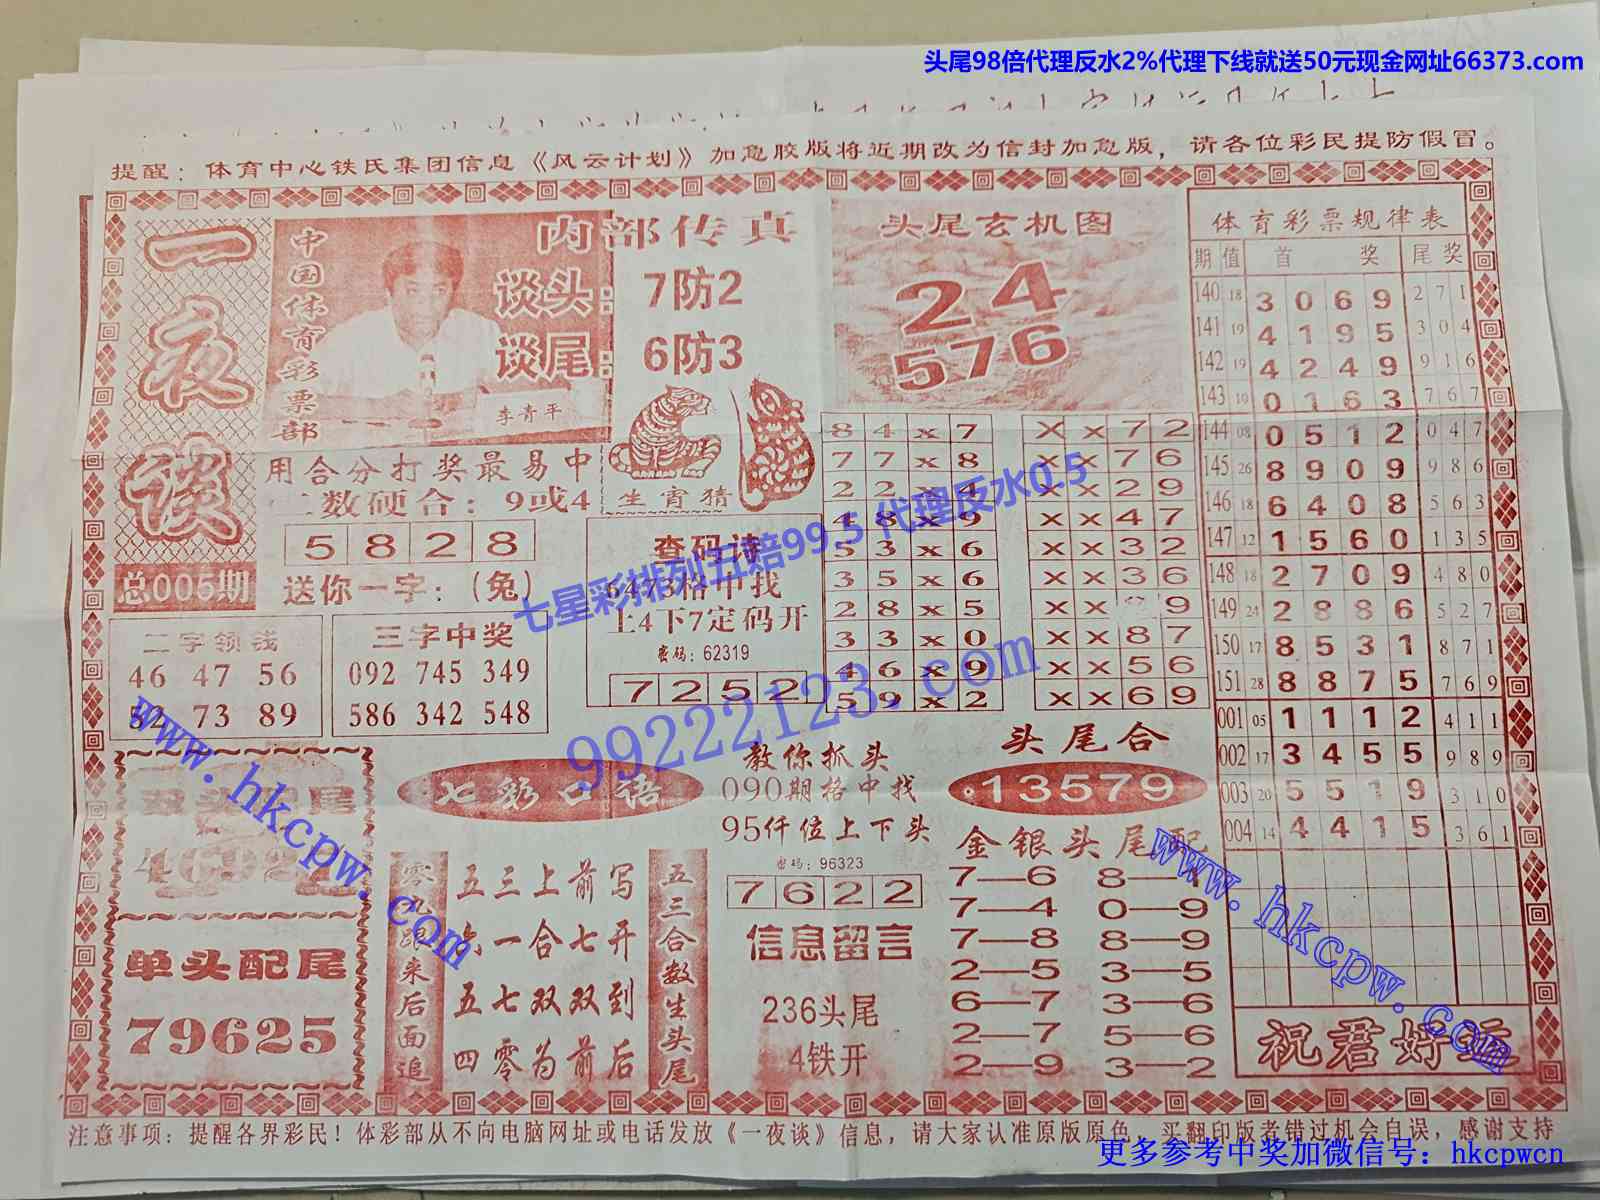 头尾98倍代理反水2%代理下线就送50元现金网址66373.com
提醒：体育中心铁氏集团信息《风云计划》加急胶版将近期改为信封加急版，请各位彩民提防假冒。
一夜谈
总005期
中国体育彩票部
内部传真
谈头：7防2
谈尾：6防3
李青平
用合分打奖最易中
二数硬合：9或4
5 8 2 8
送你一字：(兔)
生宵猜
查码诗
6473格中找
上4下7定码开
密码：62319
7 2 5 2
二字领钱
46 47 56
52 73 89
三字中奖
092 745 349
586 342 548
头尾玄机图
24
576
8 4 x 7
7 7 x 8
2 2 x 4
4 8 x 9
5 3 x 6
3 5 x 6
2 8 x 5
3 3 x 0
4 6 x 9
5 9 x 2
X x 7 2
x x 7 6
x x 2 9
x x 4 7
x x 3 2
x x 3 6
x x 9
x x 8 7
x x 5 6
x x 6 9
体育彩票规律表
期 值 首奖 尾奖
140 18 3 0 6 9 2 7 1
141 19 4 1 9 5 3 0 4
142 19 4 2 4 9 9 1 6
143 10 0 1 6 3 7 6 7
144 08 0 5 1 2 0 4 7
145 26 8 9 0 9 9 8 6
146 18 6 4 0 8 5 6 3
147 12 1 5 6 0 1 3 5
148 18 2 7 0 9 4 8 0
149 24 2 8 8 6 5 2 7
150 17 8 5 3 1 8 7 1
151 28 8 8 7 5 7 6 9
001 05 1 1 1 2 4 1 1
002 17 3 4 5 5 9 8 9
003 20 5 5 1 9 3 1 0
004 14 4 4 1 5 3 6 1
祝君好运
双头配尾
单头配尾
79625
七彩口语
零九跟来后面追
五三上前写
六一合七开
五七双双到
四零为前后
五三合数生头尾
教你抓头
090期格中找
95仟位上下头
密码：96323
7 6 2 2
信息留言
236头尾
4铁开
头尾合
13579
金银头尾配
7—6
7—4 0—9
7—8 8—9
2—5 3—5
6—7 3—6
2—7 5—6
2—9 3—2
注意事项：提醒各界彩民！体彩部从不向电脑网址或电话发放《一夜谈》信息，请大家认准原版原色，买翻印版者错过机会自误，感谢支持
七星彩排列五赔99.5代理反水0.5
99222123.com
www.hkcpw.com
www.hkcpw.com
更多参考中奖加微信号：hkcpwcn